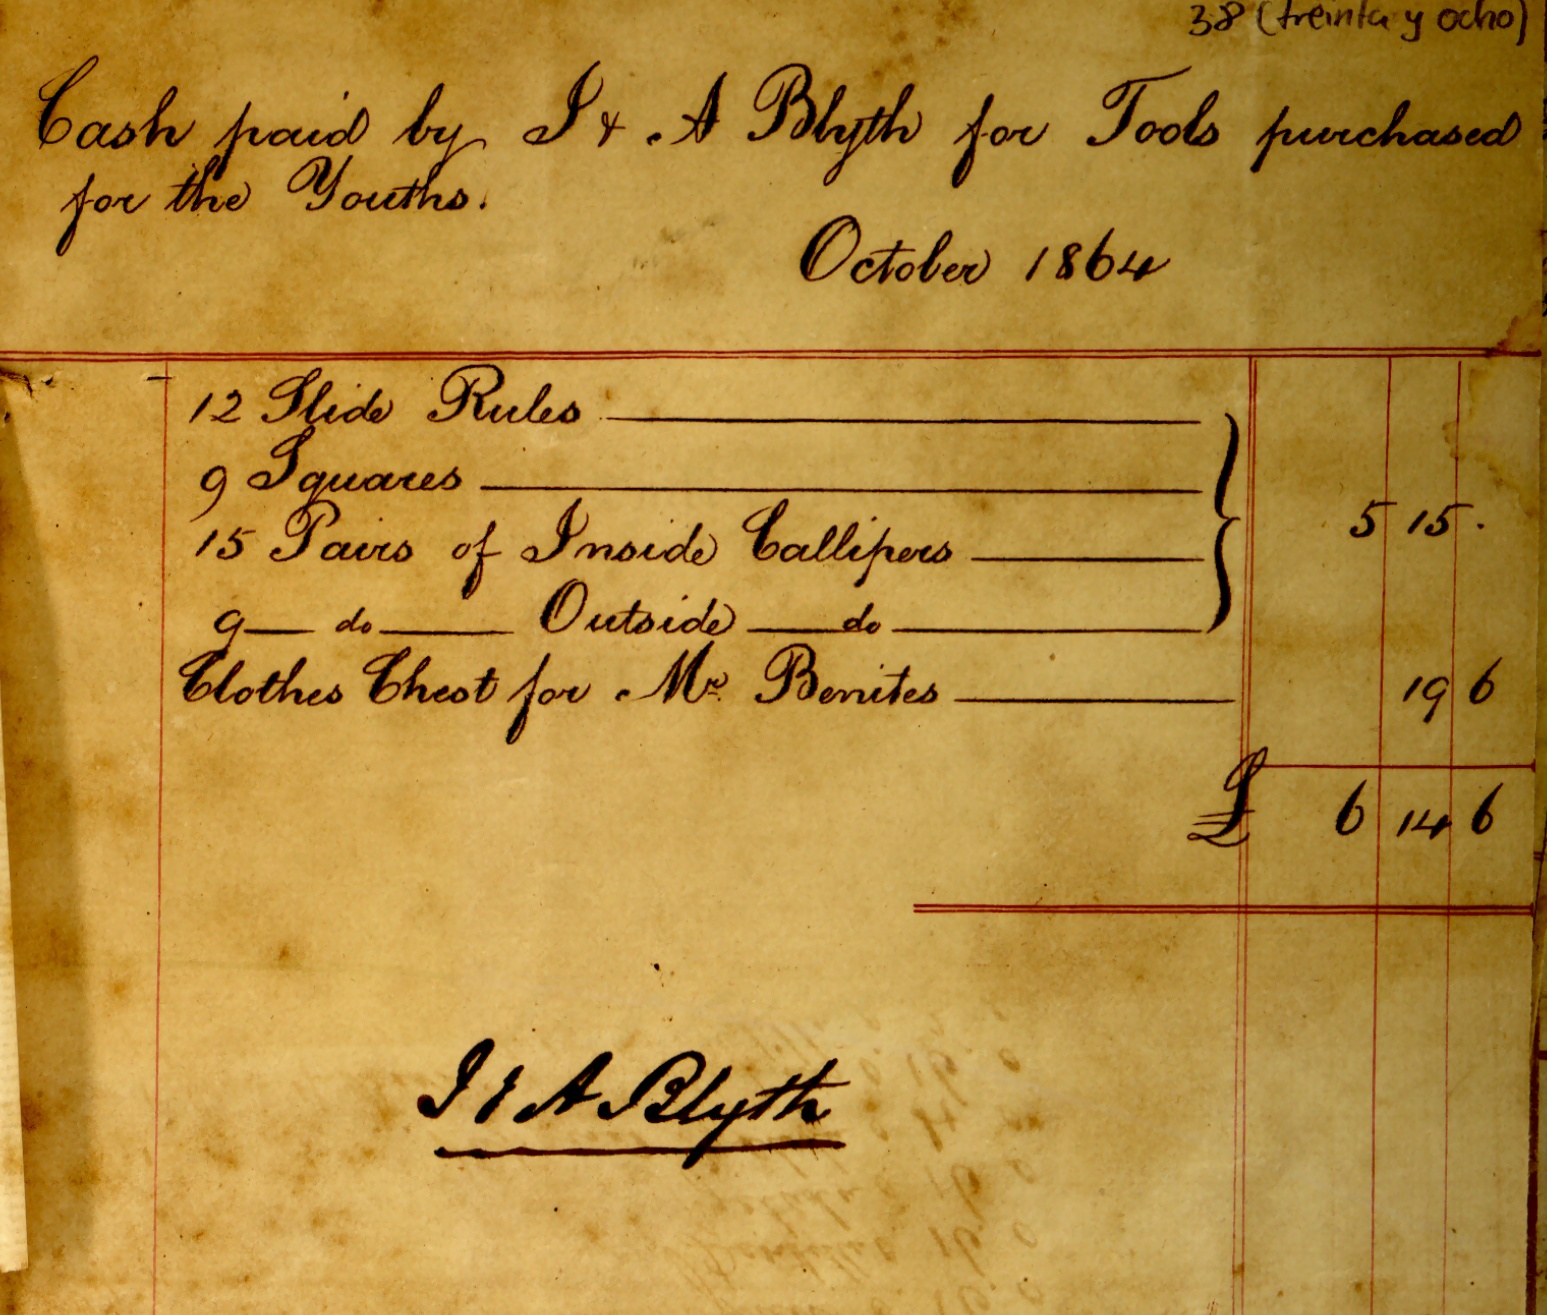 38 (treinta y ocho)
Cash paid by J & A Blyth for Tools purchased
for the Youths.
October 1864
12 Slide Rules
9 Squares
15 Pairs of Inside Callipers
5 15 .
9 do Outside do
Clothes Chest for Mr Benites 19 6
£ 6 14 6
J & A Blyth